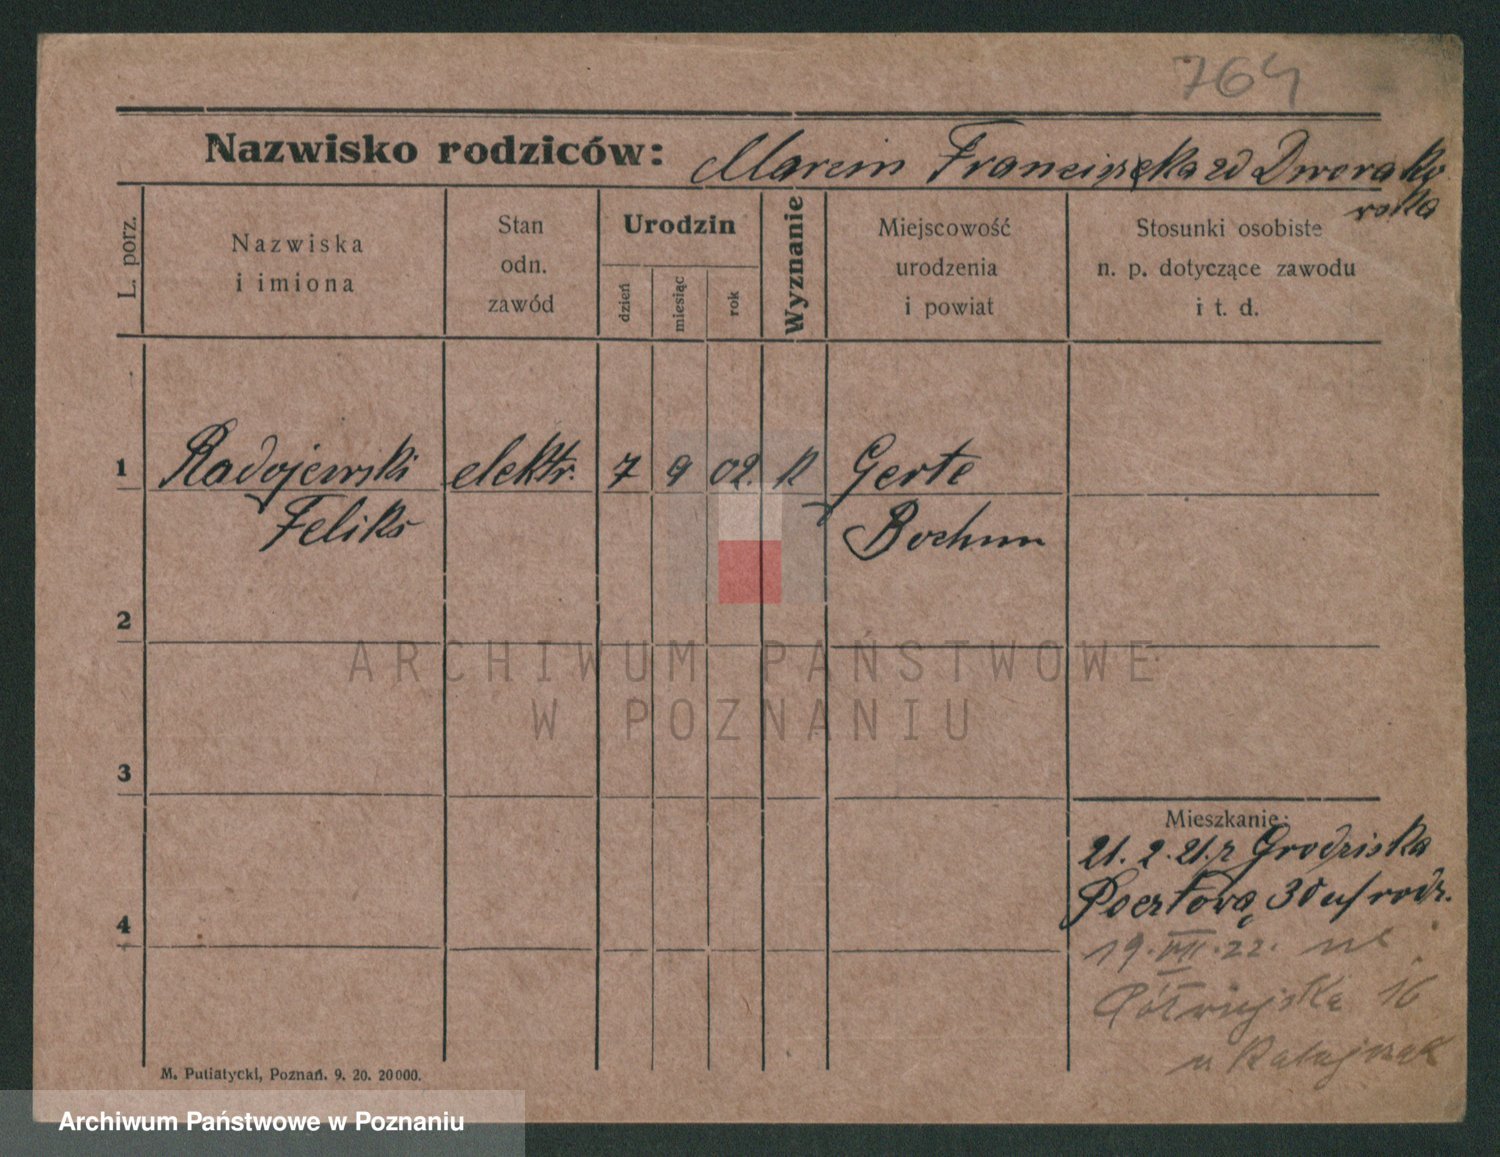 764
Nazwisko rodziców: Marcin Franciszka zd Dwora
L. porz.
Nazwiska
i imiona
Stan
odn.
zawód
Urodzin
dzień
miesiąc
rok
Wyznanie
Miejscowość
urodzenia
i powiat
Stosunki osobiste
n. p. dotyczące zawodu
i t. d.
1 Radojewski elektr. 7 9 02. K Gerte
Feliks Bochum
2
ARCHIWUM PAŃSTWOWE
W POZNANIU
3
Mieszkanie:
21. 2. 21. z Grodziska
4 Pocztowa 30 u/rodz.
19. VII. 22. na
Półwiejska 16
u Ratajczak
M. Putiatycki, Poznań. 9. 20. 20000.
Archiwum Państwowe w Poznaniu